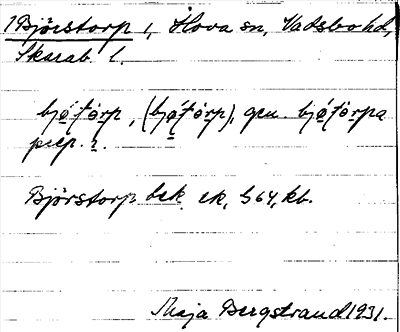 1 Björstorp 1, Hova sn, Vadsbo hd,
Skarab. l.
bjǿtǫrp, (bjǿtǫrp), gen. bjǿtǫrpa
prep. i.
Björstorp bek. ek, 564, kb.
Maja Bergstrand 1931.